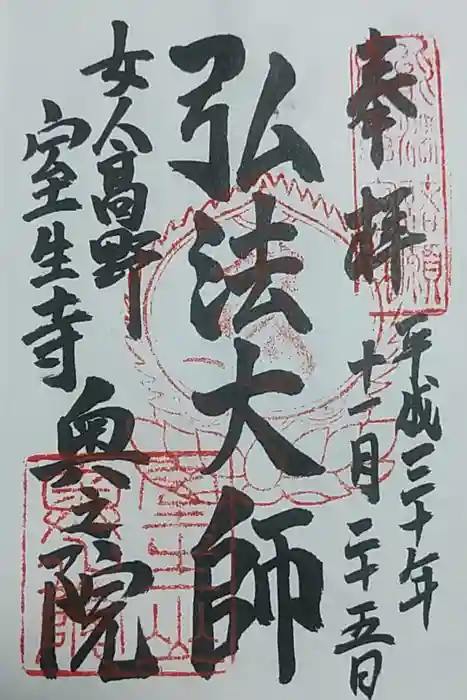 奉拝
平成三十年
十一月二十五日
弘法大師
女人高野
室生寺
奥之院